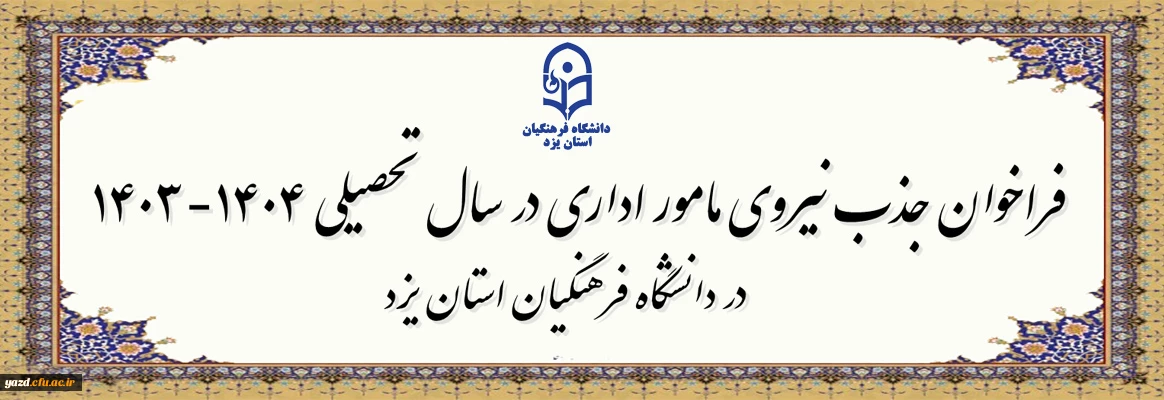 دانشگاه فرهنگیان
استان یزد
فراخوان جذب نیروی مامور اداری در سال تحصیلی ۱۴۰۴-۱۴۰۳
در دانشگاه فرهنگیان استان یزد
yazd.cfu.ac.ir